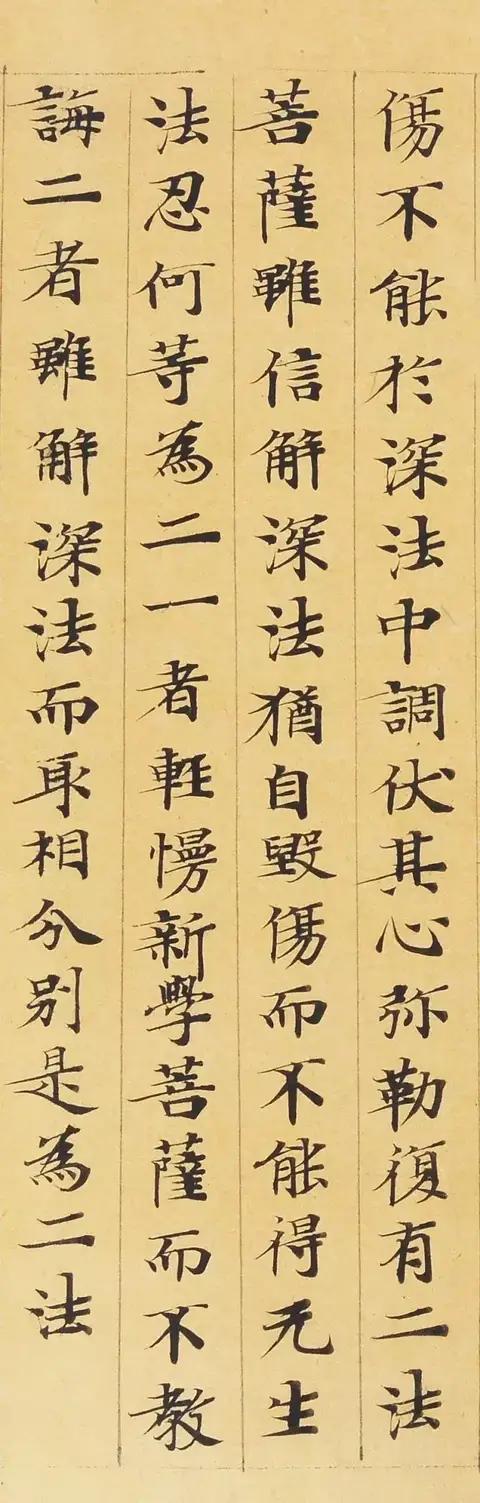 傷不能於深法中調伏其心弥勒復有二法
菩薩雖信解深法猶自毀傷而不能得无生
法忍何等為二一者輕慢新學菩薩而不教
誨二者雖解深法而取相分別是為二法